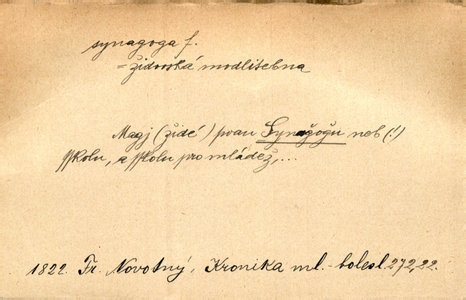 synagoga f.
= židovská modlitebna
Magj (židé) swau Synağoğu neb (!)
sskolu, a sskolu pro mládež,...
1822. Fr. Novotný, Kronika ml.-bolesl. 272,22.